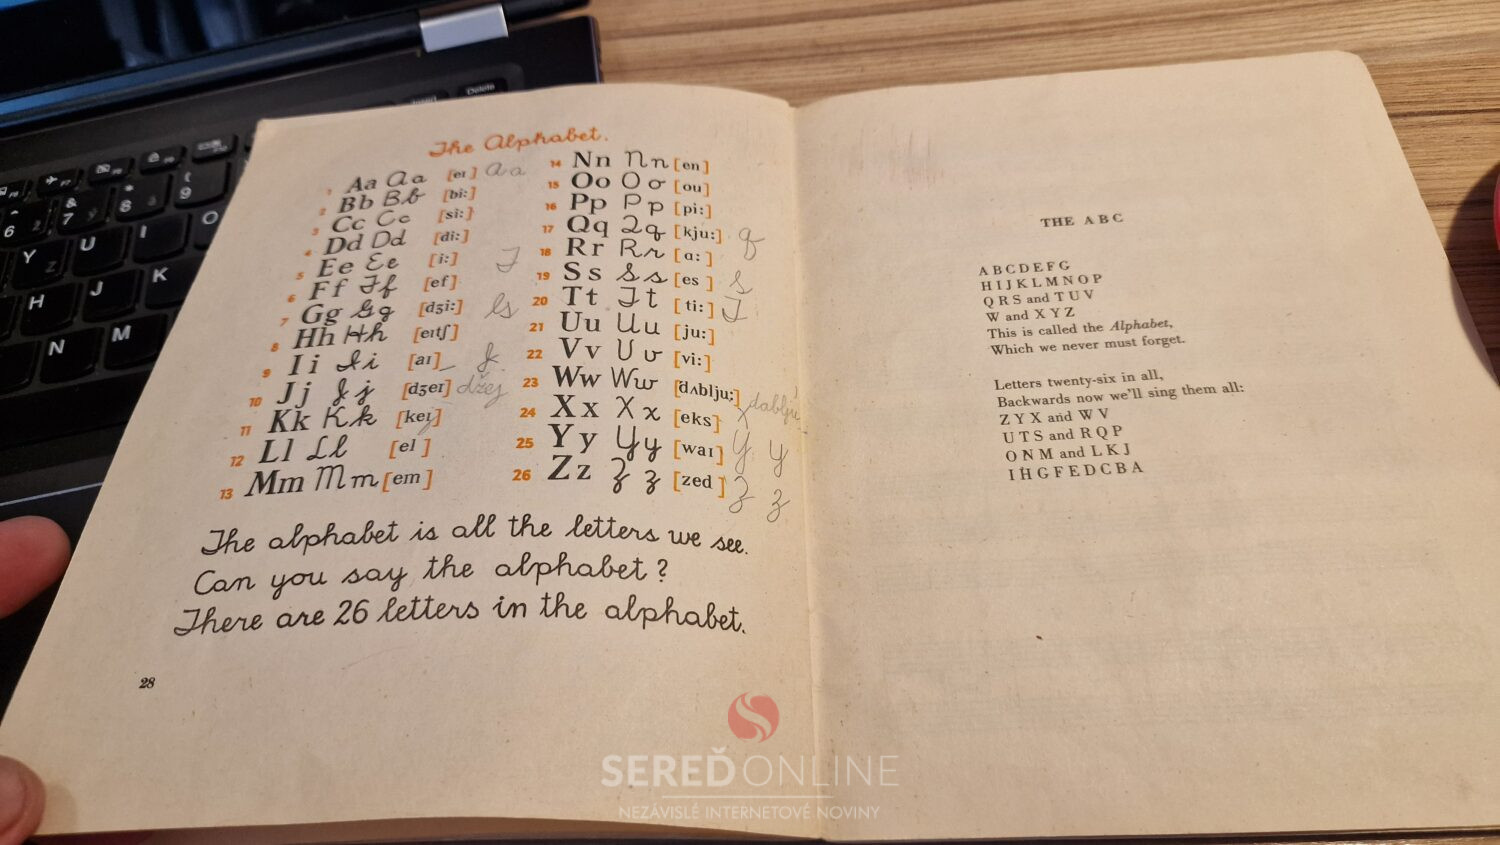 The Alphabet.
1 Aa Aa [eɪ] Aa
2 Bb Bb [bi:]
3 Cc Cc [si:]
4 Dd Dd [di:]
5 Ee Ee [i:]
6 Ff Ff [ef]
7 Gg Gg [dʒi:]
8 Hh Hh [eɪtʃ]
9 Ii Ii [aɪ]
10 Jj Jj [dʒeɪ] džej
11 Kk Kk [keɪ]
12 Ll Ll [el]
13 Mm Mm [em]
14 Nn Nn [en]
15 Oo Oo [ou]
16 Pp Pp [pi:]
17 Qq Qq [kju:] q
18 Rr Rr [a:]
19 Ss Ss [es] s
20 Tt Tt [ti:] T
21 Uu Uu [ju:]
22 Vv Vv [vi:]
23 Ww Ww [dʌblju:] dablju
24 Xx Xx [eks] x
25 Yy Yy [waɪ] Y y
26 Zz Zz [zed] Z z
The alphabet is all the letters we see.
Can you say the alphabet?
There are 26 letters in the alphabet.
28
THE ABC
A B C D E F G
H I J K L M N O P
Q R S and T U V
W and X Y Z
This is called the Alphabet,
Which we never must forget.
Letters twenty-six in all,
Backwards now we'll sing them all:
Z Y X and W V
U T S and R Q P
O N M and L K J
I H G F E D C B A
Delete
SEREĎONLINE
NEZÁVISLÉ INTERNETOVÉ NOVINY